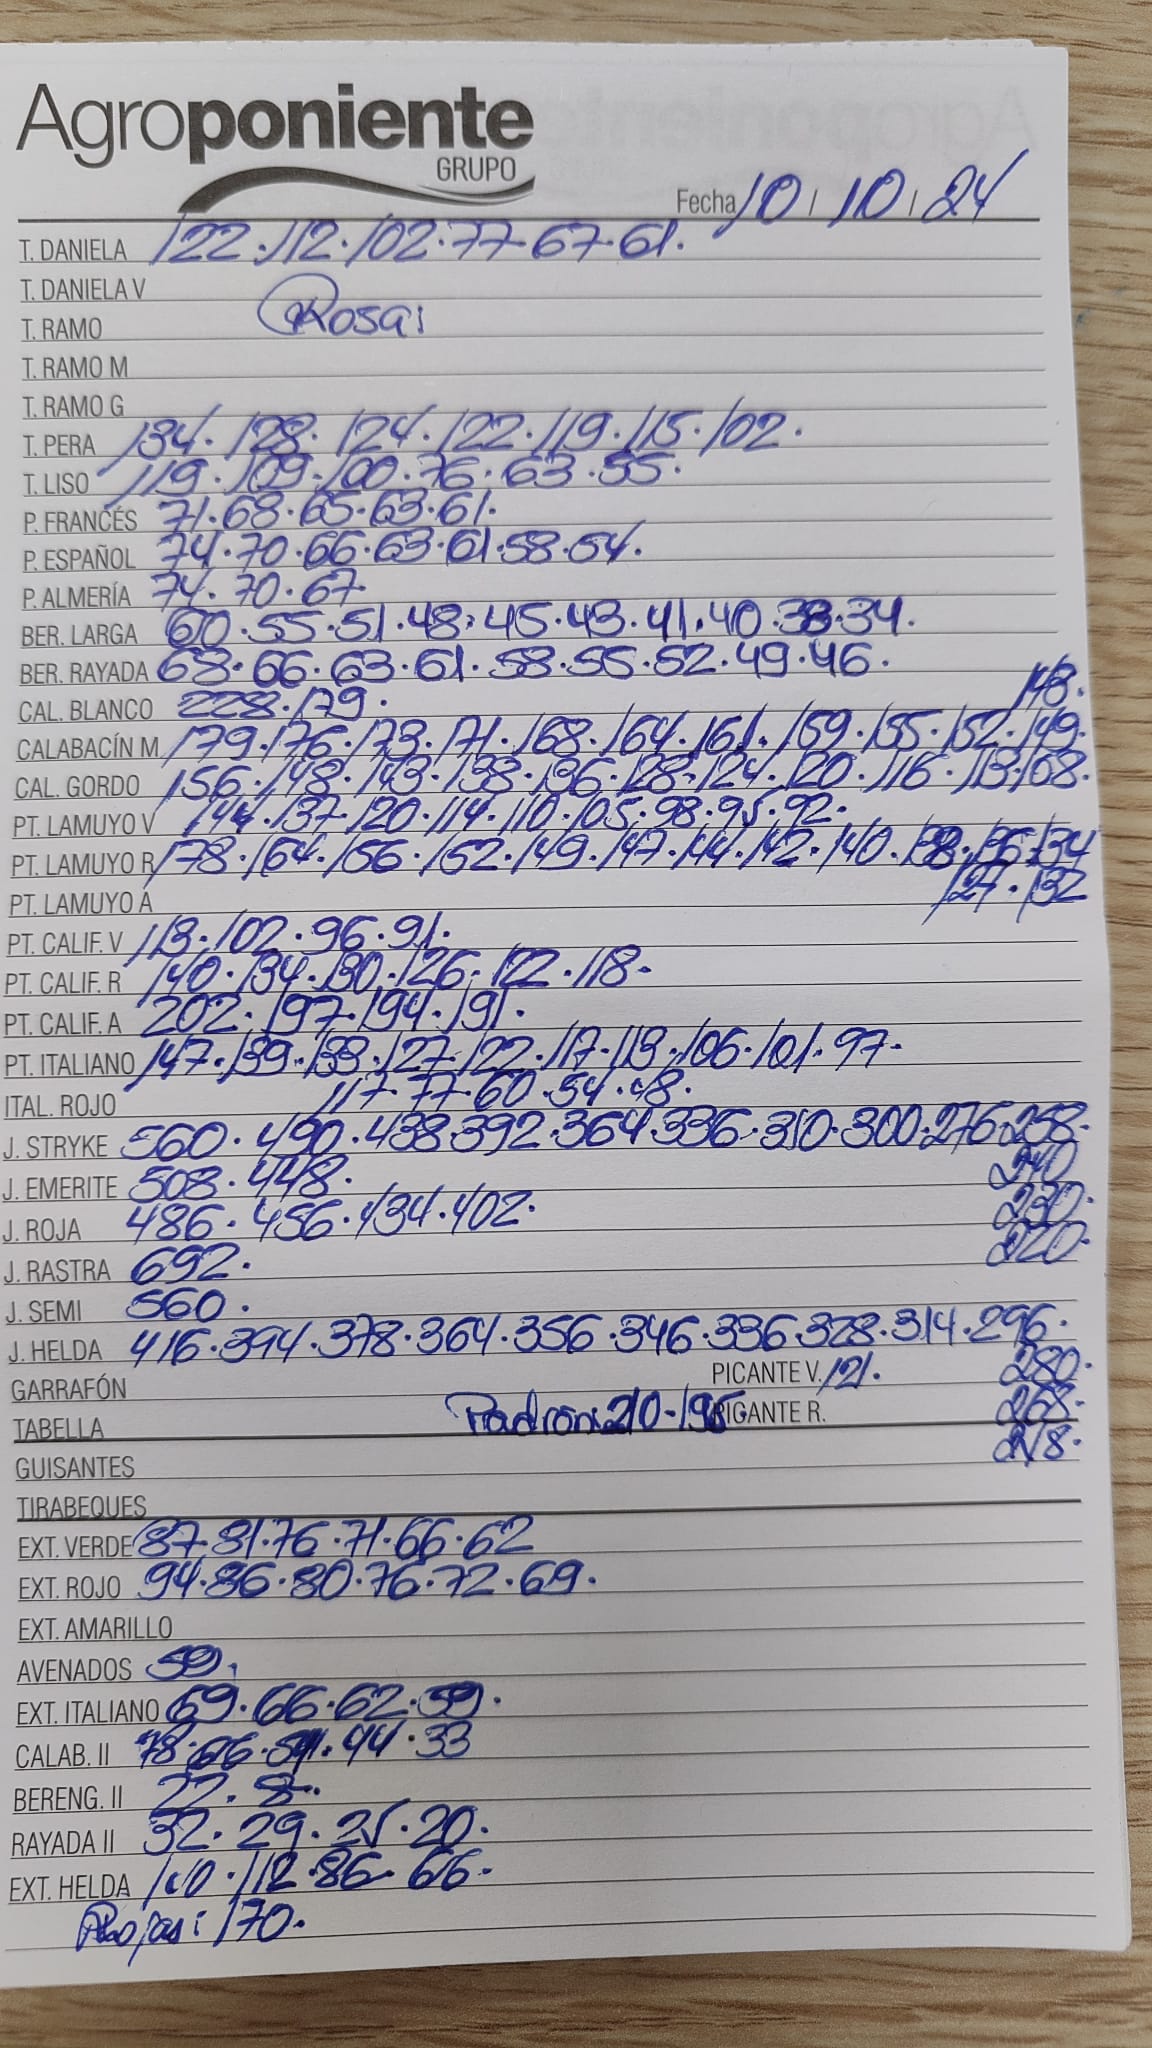 Agroponiente
GRUPO
Fecha 10 / 10 / 24
T. DANIELA 122 · 112 · 102 · 77 · 67 · 61.
T. DANIELA V
T. RAMO Rosa:
T. RAMO M
T. RAMO G
T. PERA 134 · 128 · 124 · 122 · 119 · 115 · 102.
T. LISO 119 · 109 · 100 · 76 · 63 · 55.
P. FRANCÉS 71 · 68 · 65 · 63 · 61.
P. ESPAÑOL 74 · 70 · 66 · 63 · 61 · 58 · 54.
P. ALMERÍA 74 · 70 · 67
BER. LARGA 60 · 55 · 51 · 48 · 45 · 43 · 41 · 40 · 38 · 34.
BER. RAYADA 68 · 66 · 63 · 61 · 58 · 55 · 52 · 49 · 46.
CAL. BLANCO 228 · 179.
148.
CALABACÍN M 179 · 176 · 173 · 171 · 168 · 164 · 161 · 159 · 155 · 152 · 149.
CAL. GORDO 156 · 148 · 143 · 138 · 136 · 128 · 124 · 120 · 116 · 113 · 108.
PT. LAMUYO V 144 · 137 · 120 · 114 · 110 · 105 · 98 · 95 · 92.
PT. LAMUYO R 178 · 164 · 156 · 152 · 149 · 147 · 144 · 142 · 140 · 138 · 136 · 134
PT. LAMUYO A 127 · 132
PT. CALIF. V 113 · 102 · 96 · 91.
PT. CALIF. R 140 · 134 · 130 · 126 · 122 · 118.
PT. CALIF. A 202 · 197 · 194 · 191.
PT. ITALIANO 147 · 139 · 133 · 127 · 122 · 117 · 113 · 106 · 101 · 97.
ITAL. ROJO 117 · 77 · 60 · 54 · 48.
J. STRYKE 560 · 490 · 438 · 392 · 364 · 336 · 310 · 300 · 276 · 258.
J. EMERITE 508 · 448. 240
J. ROJA 486 · 456 · 434 · 402. 230.
J. RASTRA 692. 220.
J. SEMI 560.
J. HELDA 416 · 394 · 378 · 364 · 356 · 346 · 336 · 328 · 314 · 296.
GARRAFÓN PICANTE V. 121. 280.
TABELLA Padron: 210 · 195 PIGANTE R. 268.
GUISANTES 218.
TIRABEQUES
EXT. VERDE 87 · 81 · 76 · 71 · 66 · 62
EXT. ROJO 94 · 86 · 80 · 76 · 72 · 69.
EXT. AMARILLO
AVENADOS 59.
EXT. ITALIANO 69 · 66 · 62 · 59.
CALAB. II 78 · 66 · 44 · 33
BERENG. II 22 · 8.
RAYADA II 32 · 29 · 25 · 20.
EXT. HELDA 140 · 112 · 86 · 66.
Rojas: 170.